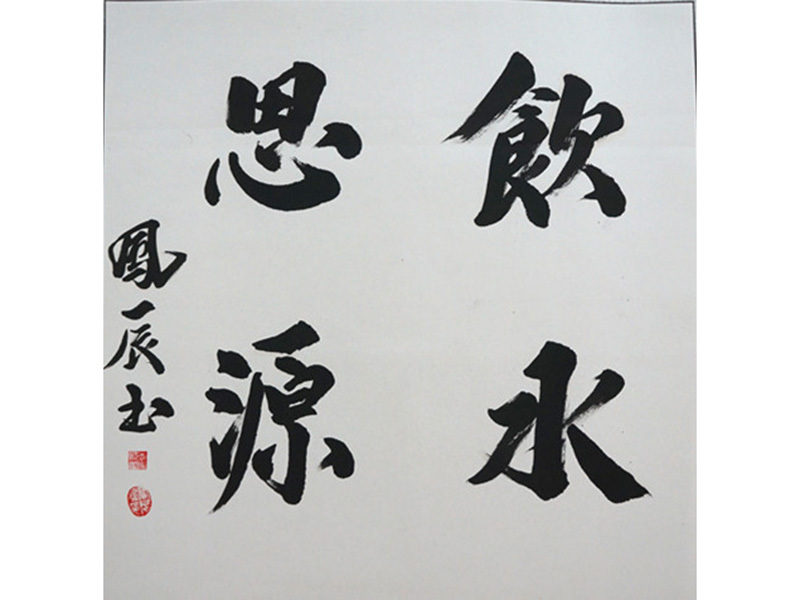 飲水
思源
鳳辰玉